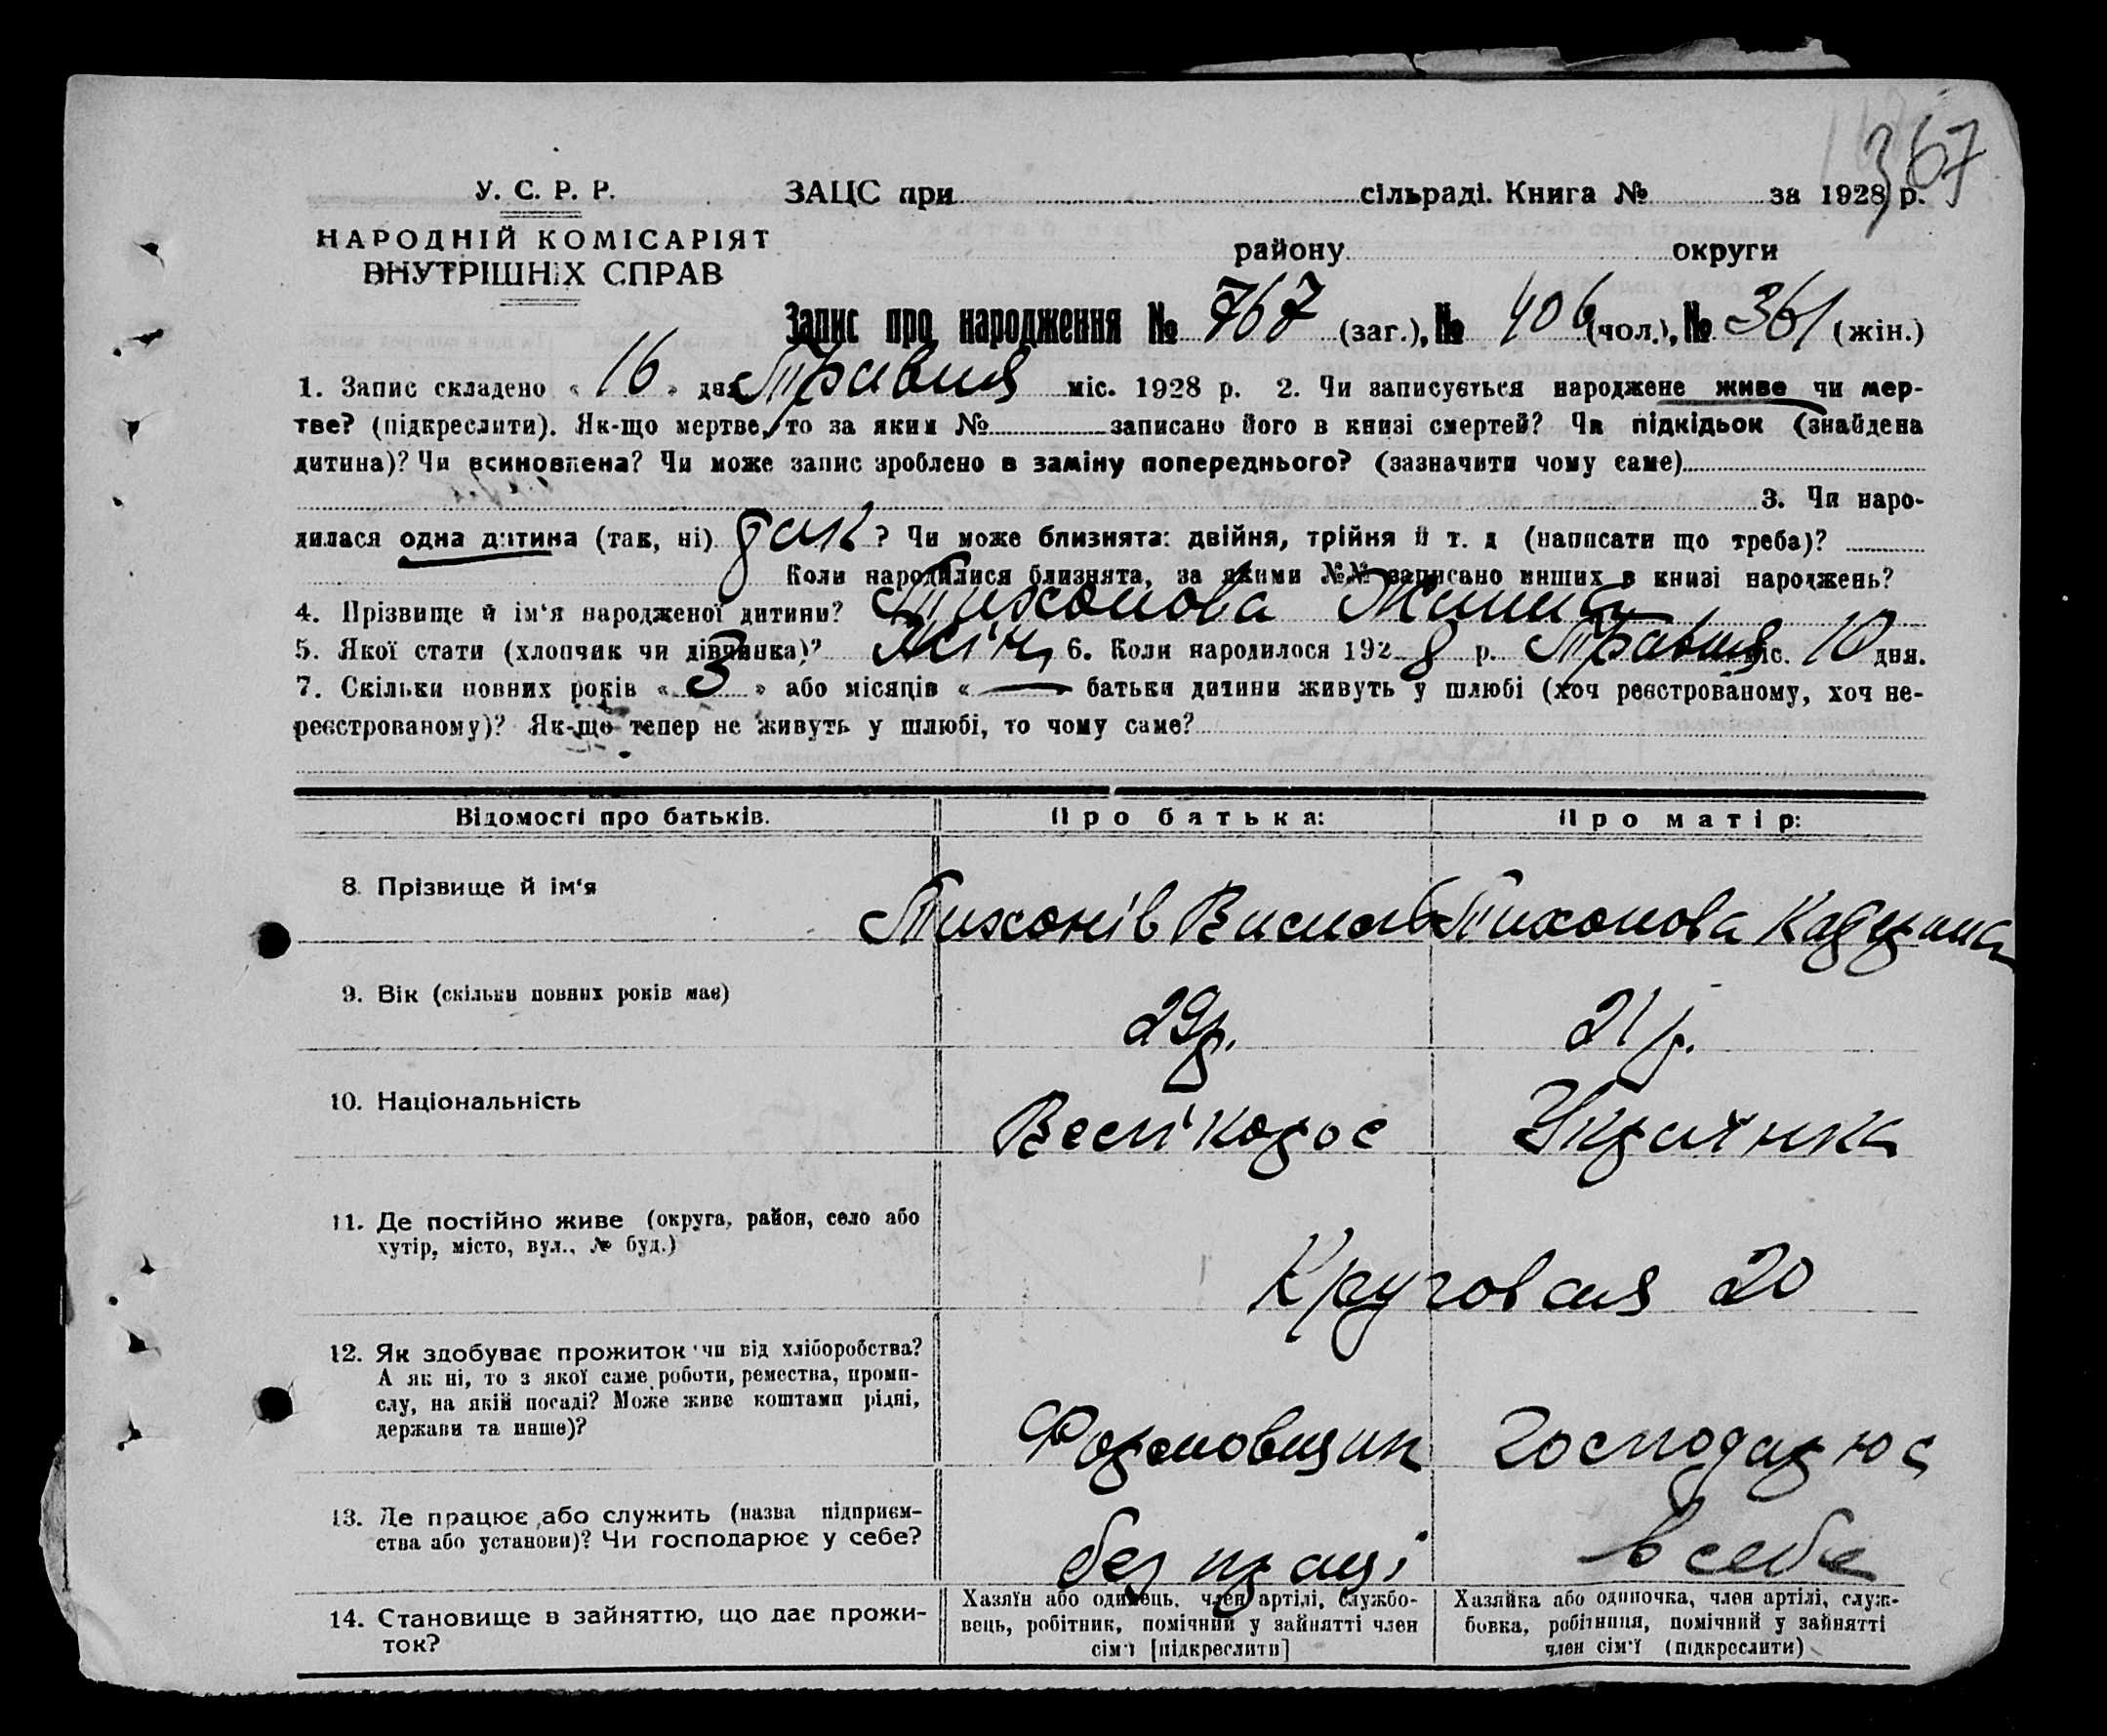 367
У. С. Р. Р.
ЗАЦС при сільраді. Книга № за 1928 р.
НАРОДНІЙ КОМІСАРІЯТ
ВНУТРІШНІХ СПРАВ
району округи
Запис про народження № 767 (заг.), № 406 (чол.), № 361 (жін.)
1. Запис складено « 16 » дня Травня міс. 1928 р. 2. Чи записується народжене живе чи мер-
тве? (підкреслити). Як-що мертве, то за яким № записано його в книзі смертей? Чи підкідьок (знайдена
дитина)? Чи всиновлена? Чи може запис зроблено в заміну попереднього? (зазначити чому саме)
3. Чи наро-
дилася одна дитина (так, ні) так? Чи може близнята: двійня, трійня й т. д (написати що треба)?
Коли народилися близнята, за якими №№ записано инших в книзі народжень?
4. Прізвище й ім‘я народженої дитини? Тихонова
5. Якої стати (хлопчик чи дівчинка)? Жін. 6. Коли народилося 1928 р. Травня міс. 10 дня.
7. Скільки повних років « 3 » або місяців « — батьки дитини живуть у шлюбі (хоч реєстрованому, хоч не-
реєстрованому)? Як-що тепер не живуть у шлюбі, то чому саме?
Відомості про батьків. Про батька: Про матір:
8. Прізвище й ім‘я Тихонів Василь Тихонова Катерина
9. Вік (скільки повних років має) 29 р. 21 р.
10. Національність Велікорос Українка
11. Де постійно живе (округа, район, село або
хутір, місто, вул., № буд.)
Круговая 20
12. Як здобуває прожиток чи від хліборобства?
А як ні, то з якої саме роботи, ремества, проми-
слу, на якій посаді? Може живе коштами рідні,
держави та инше)?
Формовщик Господарює
13. Де працює або служить (назва підприєм-
ства або установи)? Чи господарює у себе?
без праці в себе
14. Становище в зайняттю, що дає прожи-
ток?
Хазяїн або одинець, член артілі, службо-
вець, робітник, помічний у зайнятті член
сім‘ї [підкреслити]
Хазяйка або одиночка, член артілі, служ-
бовка, робітниця, помічний у зайнятті
член сім‘ї (підкреслити)